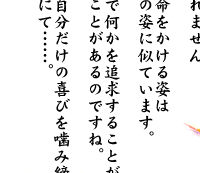 れません
命をかける姿は
の姿に似ています。
で何かを追求することが
ことがあるのですね。
自分だけの喜びを噛み締
にて……。